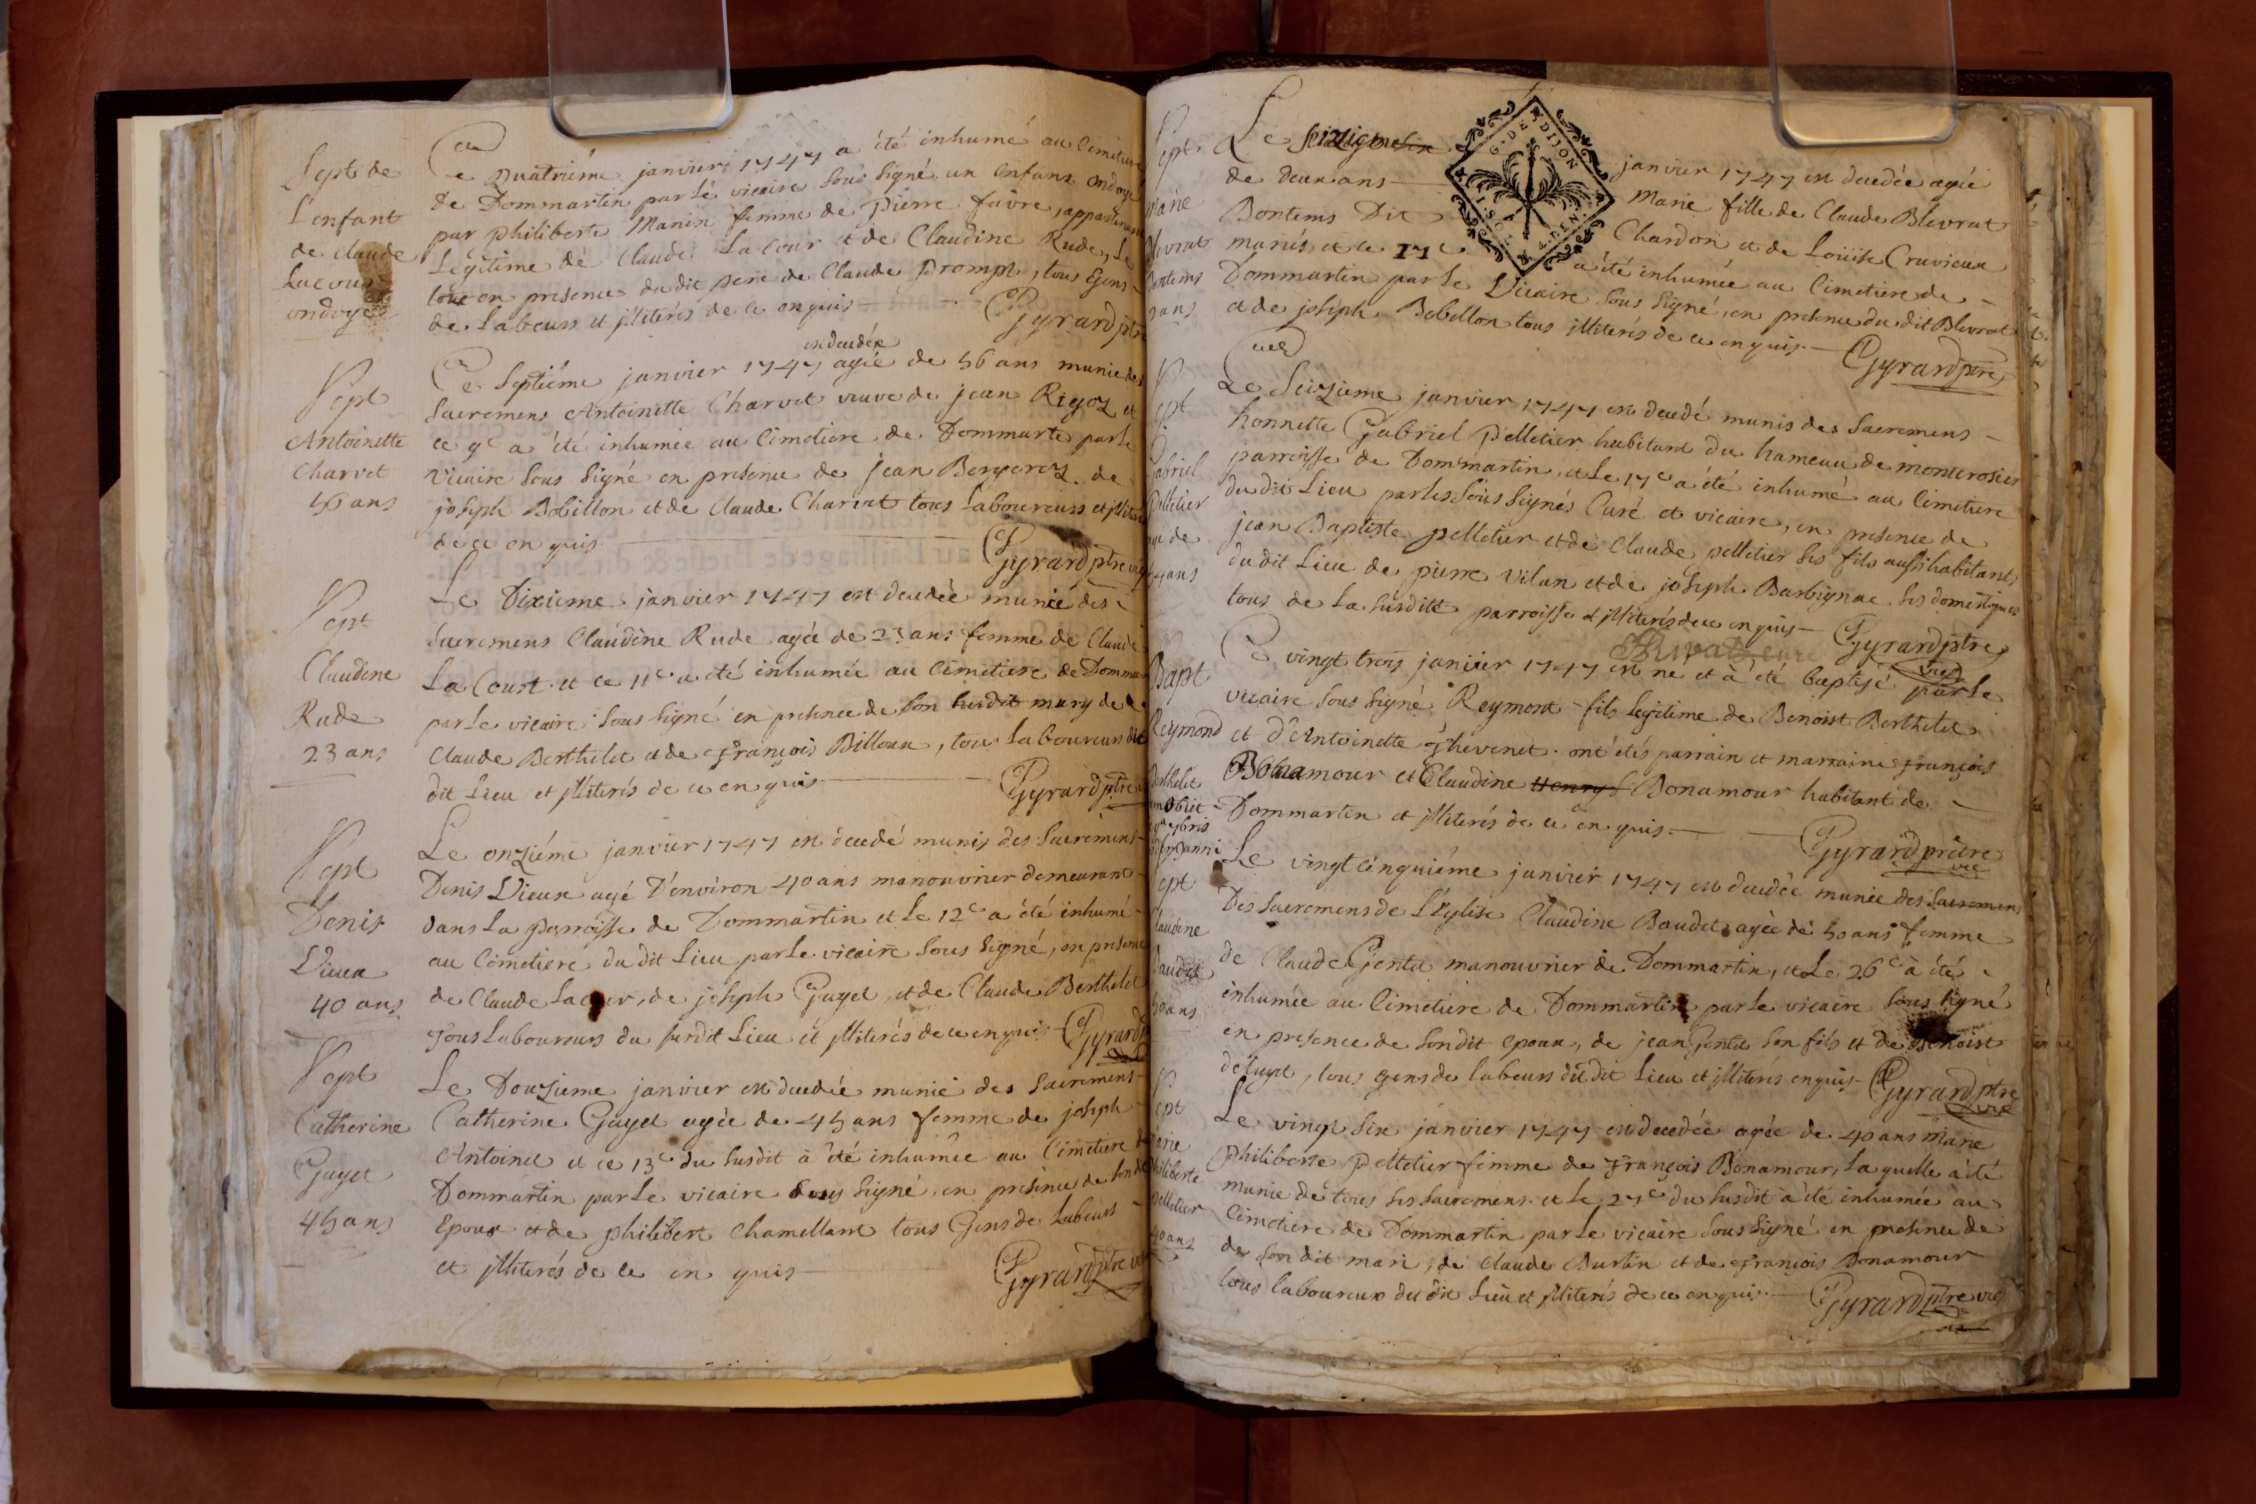 Sept de
L'enfant
de claude
Lacour
ondoyé
Ce quatrième janvier 1747 a été inhumé au Cimetiere
de Dommartin par le vicaire sous signé un enfant ondoyé
par philiberte Manin femme de pierre favre, appartenant
Legitime de Claude La Cour et de Claudine Rude, Le
tout en presence du dit pere de Claude Promph, tous Gens
de Labeurs et illiterés de ce enquis
Gyrard ptre
Sept
Antoinette
Charvet
56 ans
est decedée
Ce Septiéme janvier 1747 agée de 56 ans munie des
Sacremens Antoinette Charvet veuve de jean Rigoz et
ce 9e a été inhumée au Cimetiere de Dommarte par le
Vicaire sous signé en presence de jean Bergeroz de
joseph Bobillon et de Claude Charvet tous Laboureurs et illiterés
de ce enquis
Gyrard ptre vic
Sept
Claudine
Rude
23 ans
Le Dixieme janvier 1747 est decedée munie des
Sacremens Claudine Rude agée de 23 ans femme de Claude
La Court et ce 11e a été inhumée au Cimetiere de Dommar
par le vicaire sous signé en presence de son susdit mary de
Claude Berthelet et de François Billoux, tous Laboureurs du
dit Lieu et illiterés de ce enquis
Gyrard ptre
Sept
Denis
Vieux
40 ans
Le onzième janvier 1747 est decedé munis des Sacremens
Denis Vieux agé d'environ 40 ans manouvrier demeurant
dans La parroisse de Dommartin et Le 12e a été inhumé
au Cimetiere du dit Lieu par Le vicaire sous signé, en presence
de Claude Lacour, de joseph Guyet, et de Claude Berthelet
Tous Laboureurs du susdit Lieu et illiterés de ce enquis
Gyrard
Sept
Catherine
Guyet
45 ans
Le Douzieme janvier est decedée munie des Sacremens
Catherine Guyet agée de 45 ans femme de joseph
Antoinet et ce 13e du susdit a été inhumée au Cimetiere de
Dommartin par Le vicaire sous signé en presence de son dit
Epoux et de philibert Chamellant tous Gens de Labeurs
et illiterés de ce en quis
Gyrard ptre vic
Sept
Marie
Blevrat
Bontems
2 ans
Le seizieme
janvier 1747 est decedée agée
de deux ans
Marie fille de Claude Blevrat
Bontems Dit
Chardon et de Loüise Cruvieux
mariés et le 17e
a été inhumée au Cimetiere de
Dommartin par Le Vicaire sous signé, en presence du dit Blevrat
et de joseph Bobillon tous illiterés de ce enquis
Gyrard ptre
G. DE DIJON
Sept
Gabriel
Pelletier
agé de
ans
Le Seizieme janvier 1747 est decedé munis des Sacremens
honnette Gabriel Pelletier habitant du hameau de monterosier
parroisse de Dommartin et Le 17e a été inhumé au Cimetiere
du dit Lieu par les sous signés Curé et vicaire, en presence de
jean Baptiste pelletier et de Claude pelletier ses fils aussi habitant
du dit Lieu de pierre Vilan et de joseph Barbignac ses domestiques
tous de La susditte parroisse et illiterés de ce enquis
Gyrard ptre
vic
Bapt
Reymond
Berthelet
obiit
9bris
anni
Ce vingt trois janvier 1747 est né et a été baptisé par Le
vicaire sous signé Reymont fils legitime de Benoist Berthelet
et d'Antoinette Thevenet. ont étés parrain et marraine François
Bonamour et Claudine Henry Bonamour habitant de
Dommartin et illiterés de ce enquis
Gyrard prêtre
vic
Sept
Claudine
Baudet
50 ans
Le vingt cinquiéme janvier 1747 est decedée munie des Sacremens
Des Sacremens de L'Eglise Claudine Baudet agée de 50 ans femme
de Claude Gentet manouvrier de Dommartin, et Le 26e a été
inhumée au Cimetiere de Dommartin par le vicaire sous signé
en presence de sondit epoux, de jean Gentet son fils et de Benoist
, tous gens de labeurs du dit Lieu et illiterés enquis
Gyrard ptre
vic
Sept
Marie
Philiberte
Pelletier
40 ans
Le vingt six janvier 1747 est decedée agée de 40 ans Marie
Philiberte Pelletier femme de François Bonamour, La quelle a été
munie de tous ses sacremens et Le 27e du susdit a été inhumée au
Cimetiere de Dommartin par Le vicaire sous signé en presence de
de son dit mari, de Claude Burtin et de François Bonamour
tous laboureurs du dit Lieu et illiterés de ce enquis
Gyrard ptre vic